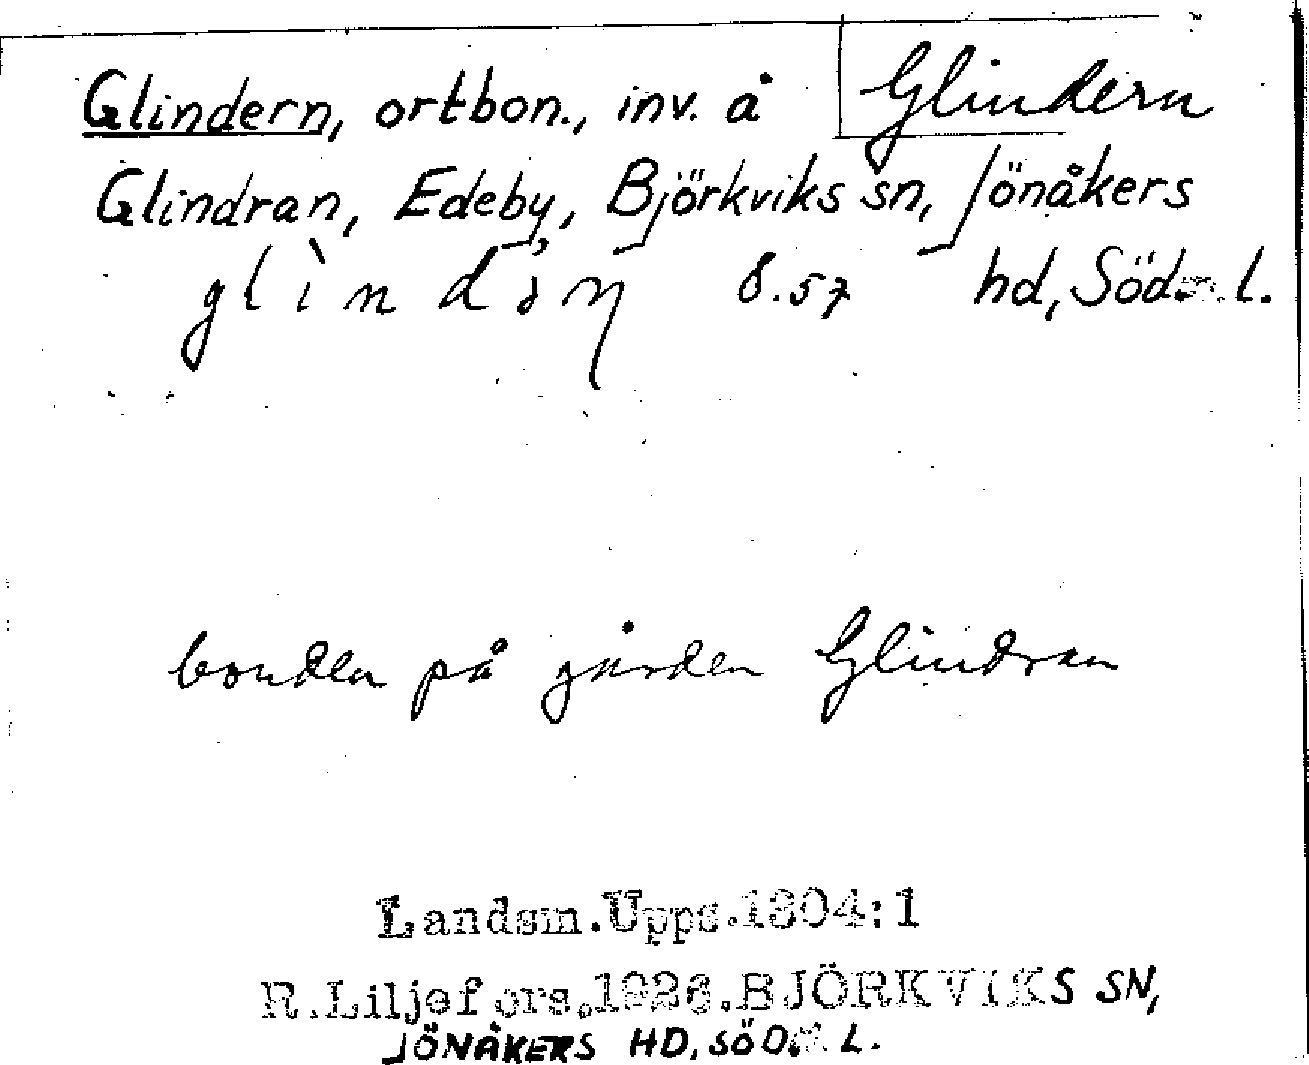 Glindern, ortbon., inv. å Glindern
Glindran, Edeby, Björkviks sn, Jönåkers
8.57 hd, Södm.l.
bonden på gården Glindran
Landsm.Upps.1304:1
R.Liljefors.1926.BJÖRKVIKS SN,
JÖNÅKERS HD, SÖDM. L.